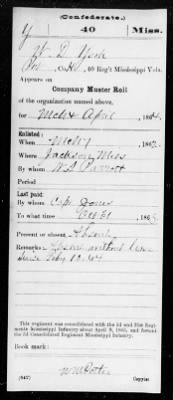 (Confederate.)
Y 40 Miss.
W. D. York
Pvt, Co. , 40 Reg't Mississippi Vols.
Appears on
Company Muster Roll
of the organization named above,
for Mch & April , 1864.
Enlisted:
When , 186
Where Jackson Miss
By whom
Period
Last paid:
By whom Capt Jones
To what time , 186
Present or absent Absent
Remarks: Absent without leave
since Feby 12 '64
This regiment was consolidated with the 3d and 31st Regiments Mississippi Infantry about April 9, 1865, and formed the 3d Consolidated Regiment Mississippi Infantry.
Book mark:
(642) Copyist.